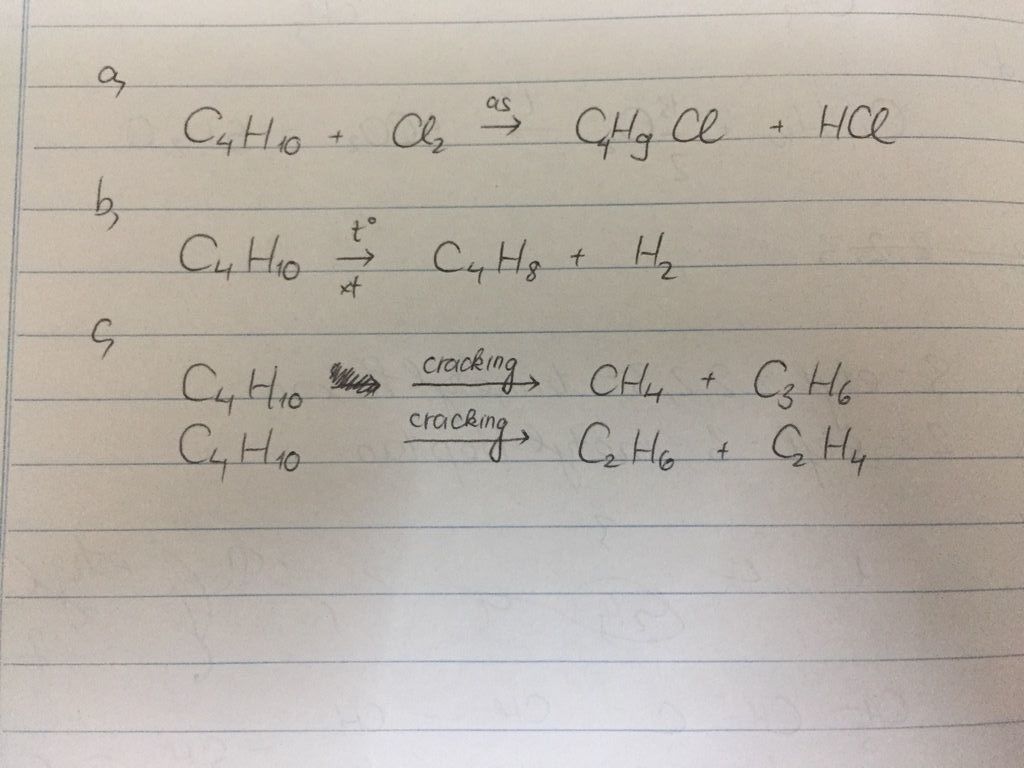 a,
C₄H₁₀ + Cl₂ →(as) C₄H₉Cl + HCl
b,
C₄H₁₀ →(t°, xt) C₄H₈ + H₂
c,
C₄H₁₀ →(cracking) CH₄ + C₃H₆
C₄H₁₀ →(cracking) C₂H₆ + C₂H₄